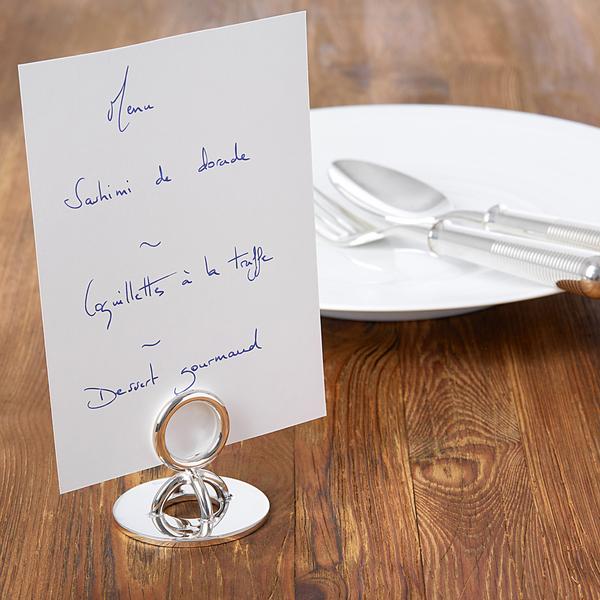 Menu
Sashimi de dorade
~
Coquillettes à la truffe
~
Dessert gourmand